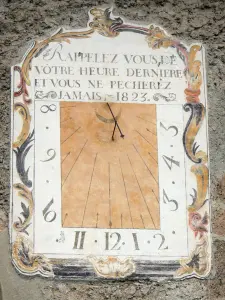 RAPPELEZ VOUS, DE
VÔTRE HEURE DERNIERE
ET VOUS NE PECHEREZ
JAMAIS - 1823.
8 4 3
9 4
6 3
11 12 1 2